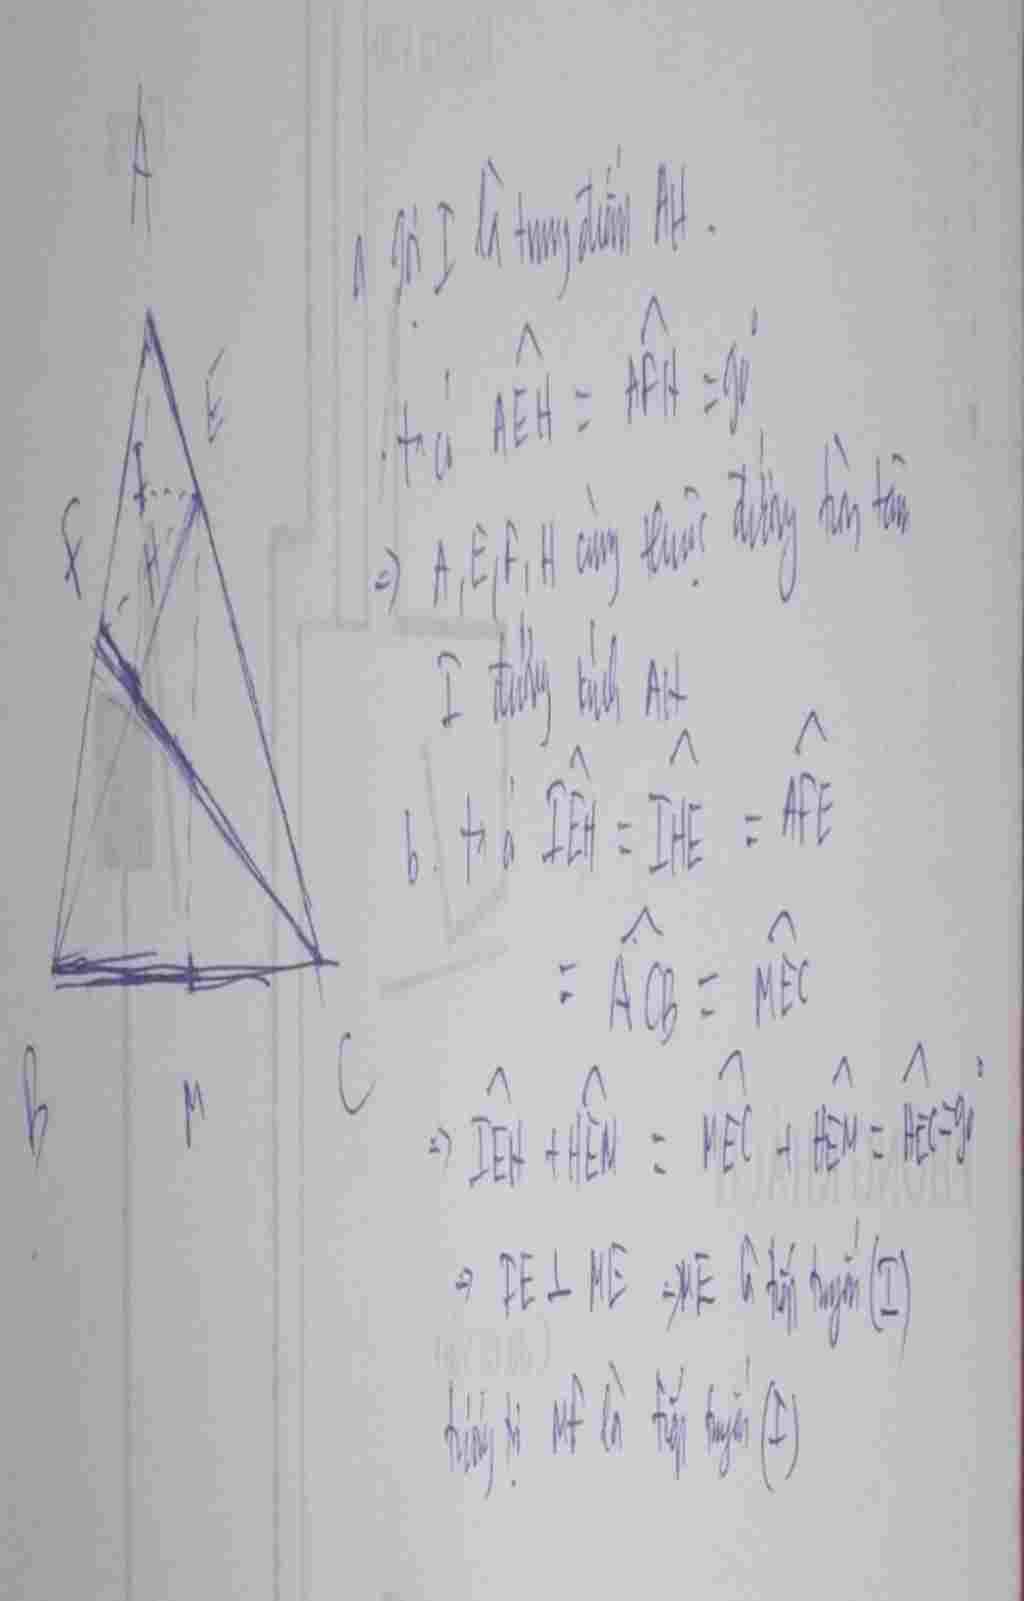 A
E
I
F
H
B
M
C
a gọi I là trung điểm AH.
ta có AÊH = AF̂H = 90°
=> A, E, F, H cùng thuộc đường tròn tâm
I đường kính AH
b. ta có IÊH = IĤE = AF̂E
= AĈB = MÊC
=> IÊH + HÊM = MÊC + HÊM = HÊC = 90°
=> IE ⊥ ME => ME là tiếp tuyến (I)
tương tự MF là tiếp tuyến (I)